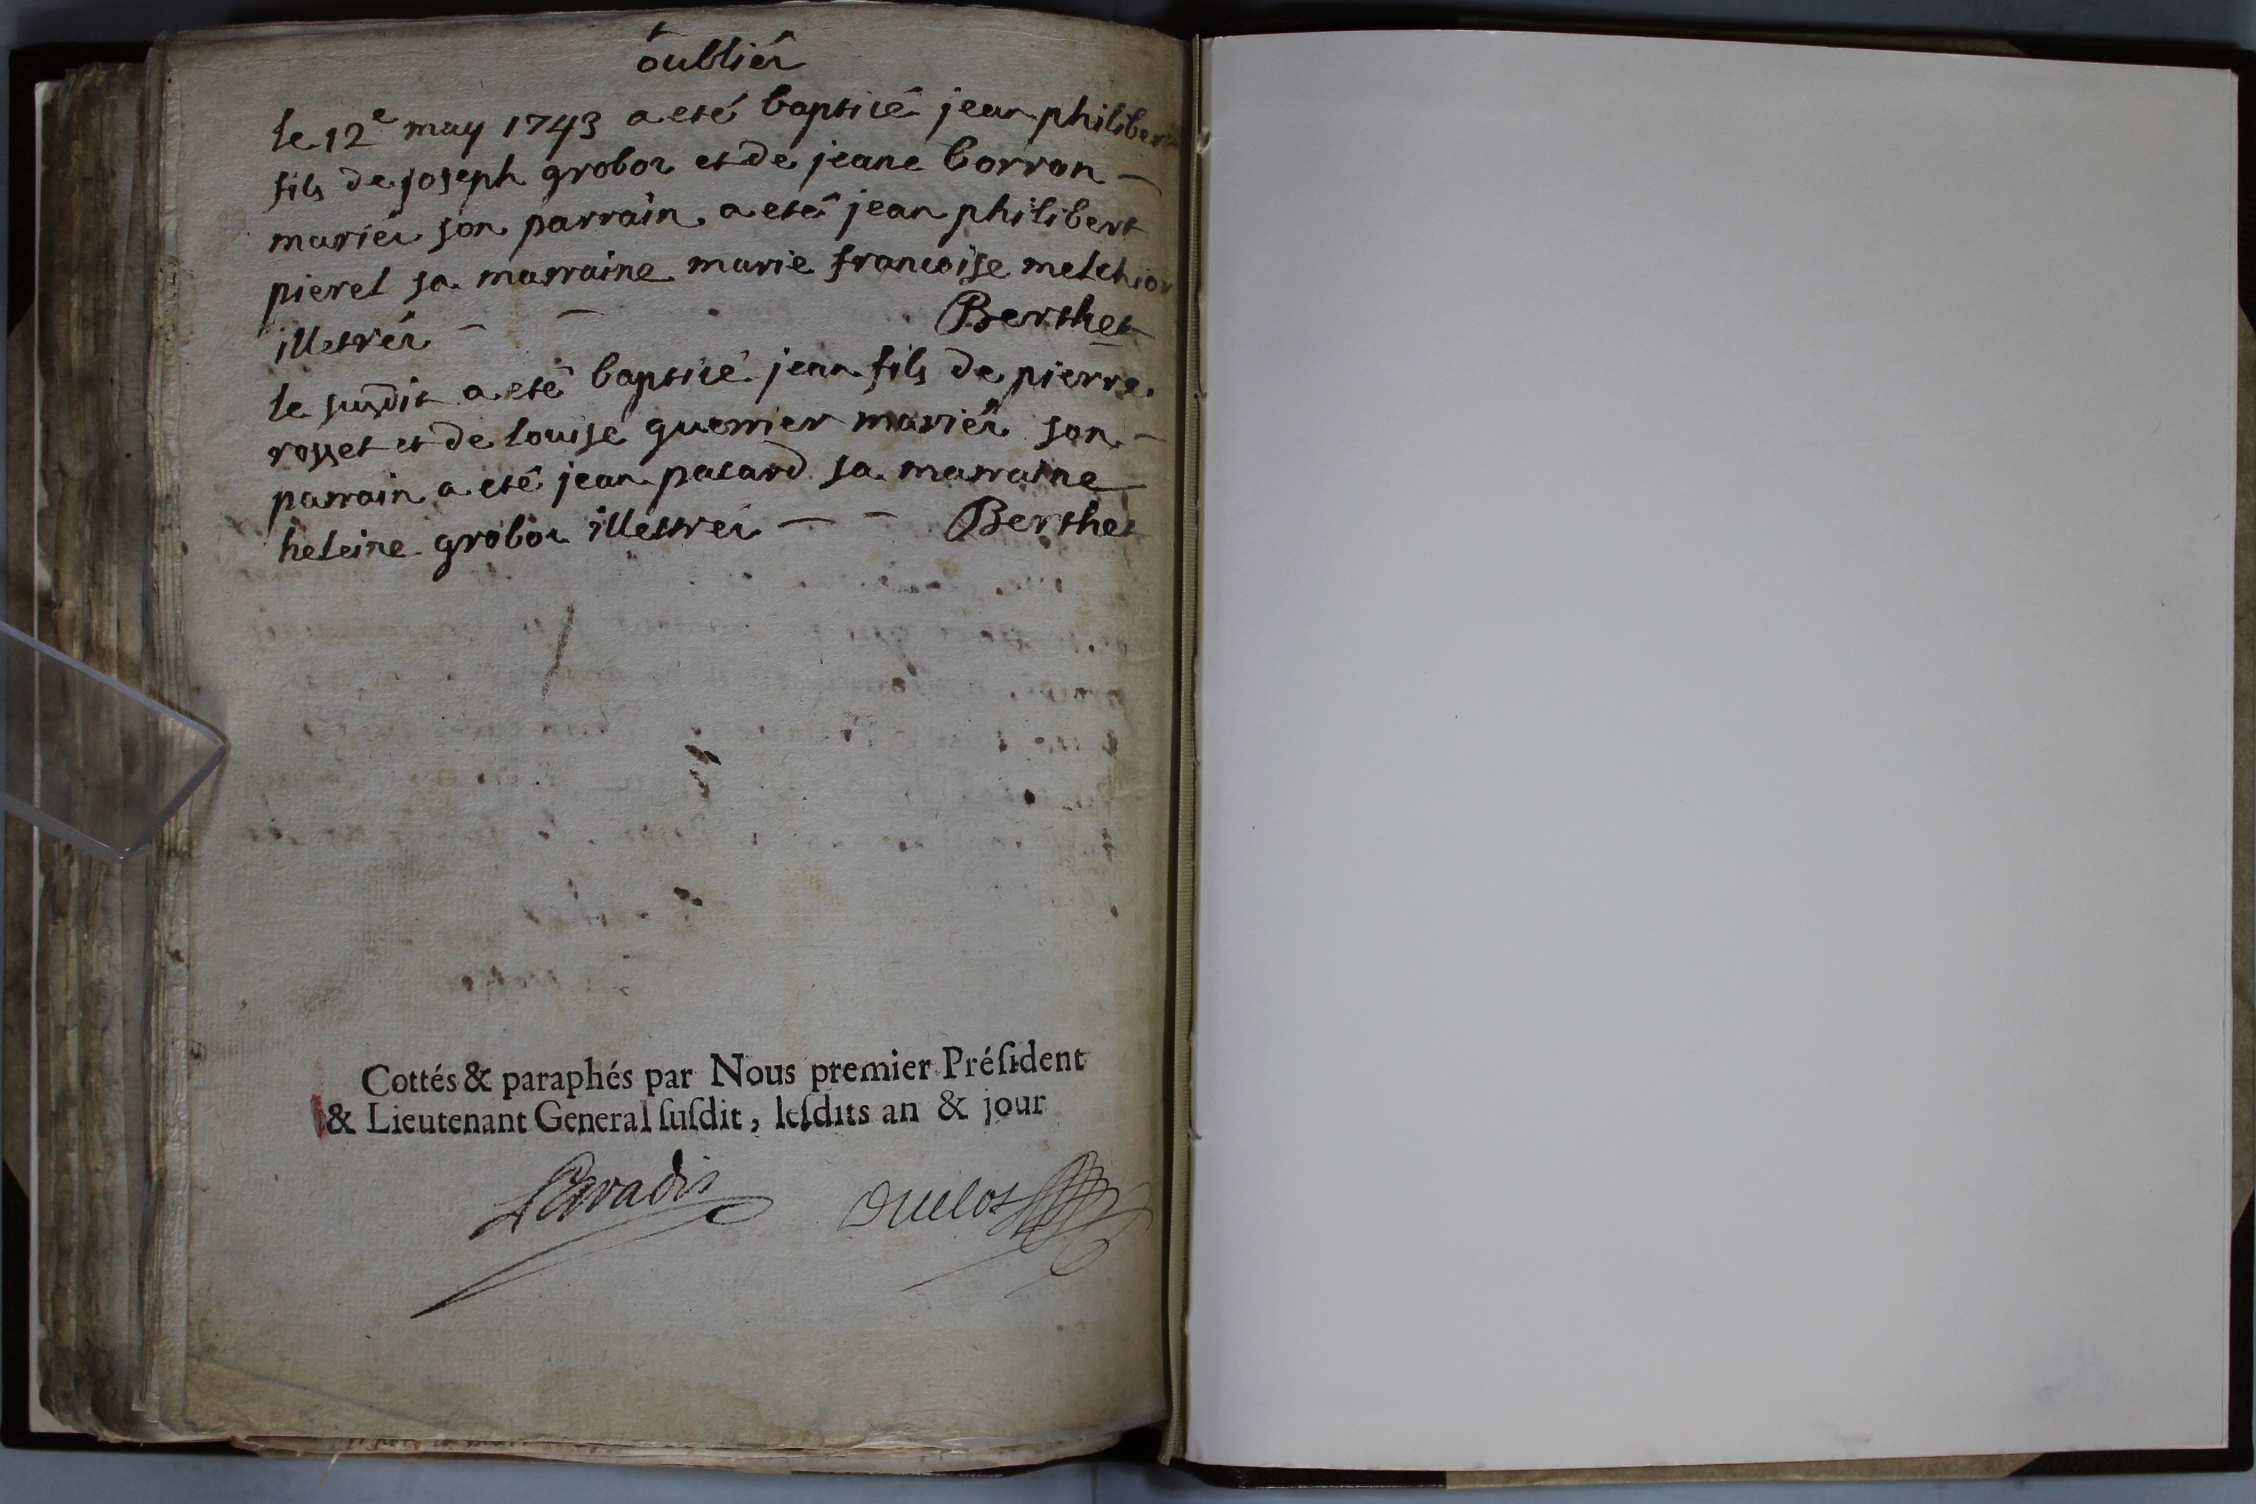 oubliés
le 12e may 1743 a eté baptisé jean philibert
fils de joseph groboz et de jeane borron
mariés son parrain a eté jean philibert
pieret sa marraine marie francoise melchior
illetrés Berthet
le susdit a eté baptisé jean fils de pierre
rosset et de louise guerrier mariés son
parrain a eté jean pacard sa marraine
heleine groboz illettrés Berthet
Cottés & paraphés par Nous premier Préſident
& Lieutenant General ſuſdit, leſdits an & jour
Paradis Duclos